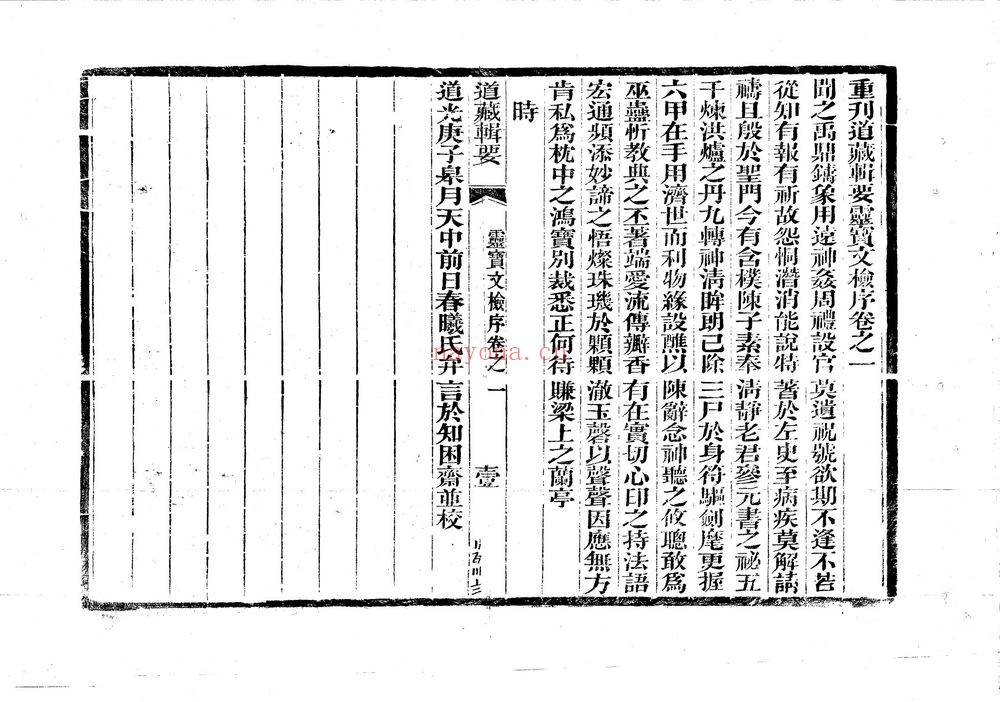 重刊道藏輯要靈寶文檢序卷之一
聞之禹鼎鑄象用遠神姦周禮設官莫遺祝號欲期不逢不若
從知有報有祈故怨恫潛消能說特著於左史至病疾莫解請
禱且殷於聖門今有含樸陳子素奉清靜老君參元書之祕五
千煉洪爐之丹九轉神清眸朗已除三尸於身符驅劍麾更握
六甲在手用濟世而利物緣設醮以陳辭念神聽之攸聰敢爲
巫蠱忻教典之丕著端愛流傳瓣香有在實切心印之持法語
宏通頻添妙諦之悟燦珠璣於顆顆澈玉磬以聲聲因應無方
肯私爲枕中之鴻寶別裁悉正何待賺梁上之蘭亭
時
道藏輯要
靈寶文檢序卷之一
壹
道光庚子皋月天中前日春曦氏弁言於知困齋並校
nayona.cn